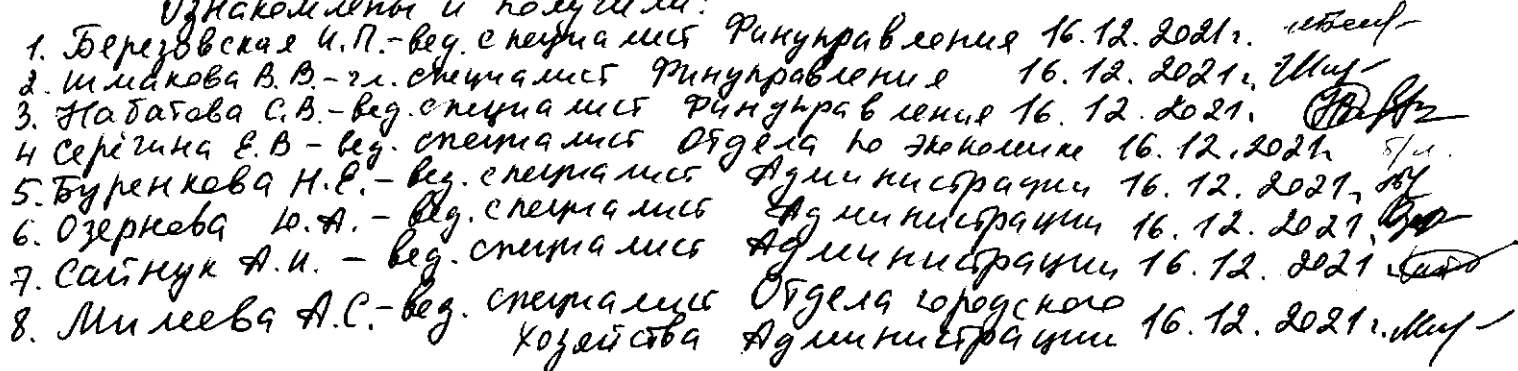 Ознакомлены и получили:
1. Березовская И.П.-вед. специалист Финуправления 16.12.2021г.
2. Шмакова В.В.-гл. специалист Финуправления 16.12.2021г.
3. Набатова С.В.-вед. специалист Финуправления 16.12.2021.
4 Серёгина Е.В - вед. специалист Отдела по экономике 16.12.2021г
5. Буренкова Н.Е.- вед. специалист Администрации 16.12.2021г
6. Озернова Ю.А. - вед. специалист Администрации 16.12.2021.
7. Сайнук А.И. - вед. специалист Администрации 16.12.2021
8. Милеева А.С.-вед. специалист Отдела городского
хозяйства Администрации 16.12.2021г.